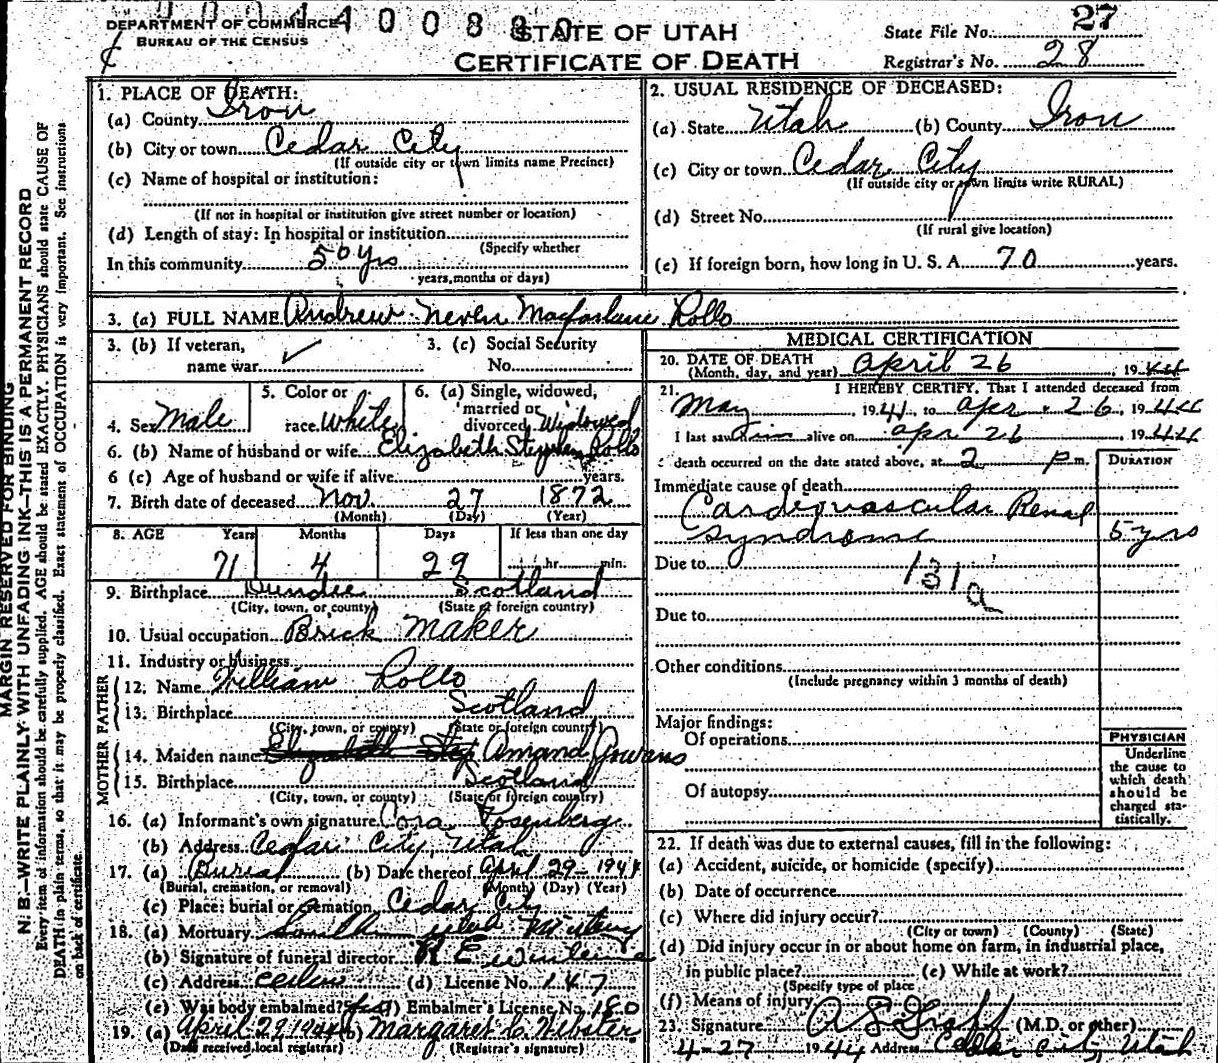 DEPARTMENT OF COMMERCE
BUREAU OF THE CENSUS
STATE OF UTAH
CERTIFICATE OF DEATH
State File No. 27
Registrar's No. 28
MARGIN RESERVED FOR BINDING
N. B.—WRITE PLAINLY WITH UNFADING INK—THIS IS A PERMANENT RECORD
Every item of information should be carefully supplied. AGE should be stated EXACTLY. PHYSICIANS should state CAUSE OF
DEATH in plain terms, so that it may be properly classified. Exact statement of OCCUPATION is very important. See instructions
on back of certificate.
1. PLACE OF DEATH:
(a) County Iron
(b) City or town Cedar City
(If outside city or town limits name Precinct)
(c) Name of hospital or institution:
(If not in hospital or institution give street number or location)
(d) Length of stay: In hospital or institution
(Specify whether
In this community 50 yrs
years, months or days)
2. USUAL RESIDENCE OF DECEASED:
(a) State Utah (b) County Iron
(c) City or town Cedar City
(If outside city or town limits write RURAL)
(d) Street No.
(If rural give location)
(e) If foreign born, how long in U. S. A. 70 years.
3. (a) FULL NAME Andrew Neven Macfarlane Rollo
3. (b) If veteran,
name war
3. (c) Social Security
No.
4. Sex Male
5. Color or
race White
6. (a) Single, widowed,
married or
divorced Widowed
6. (b) Name of husband or wife Elizabeth Stephen Rollo
6 (c) Age of husband or wife if alive years.
7. Birth date of deceased Nov. 27 1872
(Month) (Day) (Year)
8. AGE Years Months Days If less than one day
71 4 29 hr. min.
9. Birthplace Dundee Scotland
(City, town, or county) (State or foreign country)
10. Usual occupation Brick Maker
11. Industry or business
FATHER
12. Name William Rollo
13. Birthplace Scotland
(City, town, or county) (State or foreign country)
MOTHER
14. Maiden name Elizabeth Step Amand Gowans
15. Birthplace Scotland
(City, town, or county) (State or foreign country)
16. (a) Informant's own signature Cora Rosenberg
(b) Address Cedar City, Utah
17. (a) Burial (b) Date thereof April 29-1944
(Burial, cremation, or removal) (Month) (Day) (Year)
(c) Place: burial or cremation Cedar City
18. (a) Mortuary South Utah Mortuary
(b) Signature of funeral director R E
(c) Address Cedar (d) License No. 147
(e) Was body embalmed? Yes (f) Embalmer's License No. 180
19. (a) April 29 1944 (b) Margaret C. Webster
(Date received local registrar) (Registrar's signature)
MEDICAL CERTIFICATION
20. DATE OF DEATH
(Month, day, and year) April 26, 1944
21. I HEREBY CERTIFY, That I attended deceased from
May, 1941, to Apr. 26, 1944
I last saw him alive on Apr 26 1944
death occurred on the date stated above, at 2 p m.
DURATION
Immediate cause of death
Cardiovascular Renal
Syndrome 5 yrs
Due to 131a
Due to
Other conditions
(Include pregnancy within 3 months of death)
Major findings:
Of operations
Of autopsy
PHYSICIAN
Underline
the cause to
which death
should be
charged sta-
tistically.
22. If death was due to external causes, fill in the following:
(a) Accident, suicide, or homicide (specify)
(b) Date of occurrence
(c) Where did injury occur?
(City or town) (County) (State)
(d) Did injury occur in or about home on farm, in industrial place,
in public place? (e) While at work?
(Specify type of place
(f) Means of injury
23. Signature (M.D. or other)
4-27 1944 Address Cedar City Utah